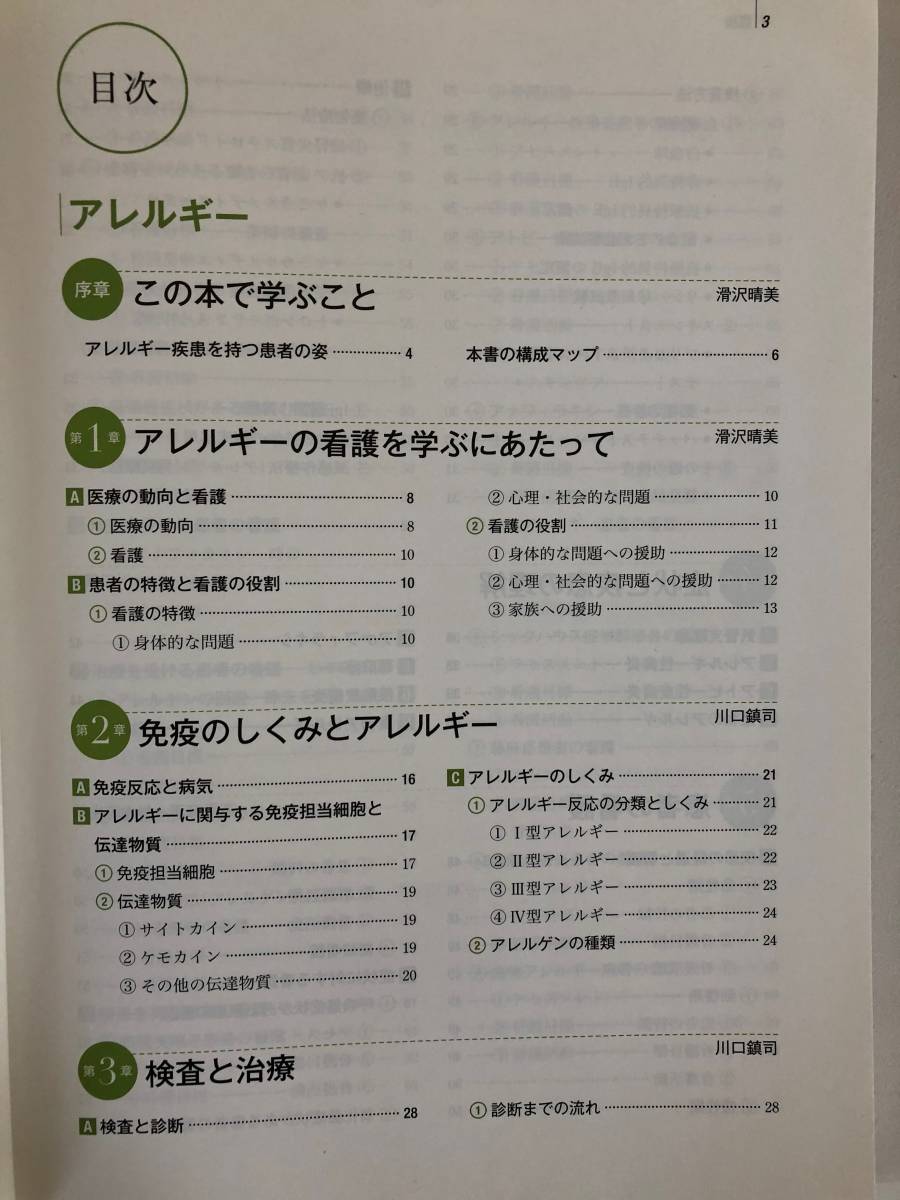 3
目次
アレルギー
序章 この本で学ぶこと 滑沢晴美
アレルギー疾患を持つ患者の姿 4
本書の構成マップ 6
第1章 アレルギーの看護を学ぶにあたって 滑沢晴美
A 医療の動向と看護 8
① 医療の動向 8
② 看護 10
B 患者の特徴と看護の役割 10
① 看護の特徴 10
① 身体的な問題 10
② 心理・社会的な問題 10
② 看護の役割 11
① 身体的な問題への援助 12
② 心理・社会的な問題への援助 12
③ 家族への援助 13
第2章 免疫のしくみとアレルギー 川口鎮司
A 免疫反応と病気 16
B アレルギーに関与する免疫担当細胞と
伝達物質 17
① 免疫担当細胞 17
② 伝達物質 19
① サイトカイン 19
② ケモカイン 19
③ その他の伝達物質 20
C アレルギーのしくみ 21
① アレルギー反応の分類としくみ 21
① Ⅰ型アレルギー 22
② Ⅱ型アレルギー 22
③ Ⅲ型アレルギー 23
④ Ⅳ型アレルギー 24
② アレルゲンの種類 24
第3章 検査と治療 川口鎮司
A 検査と診断 28
① 診断までの流れ 28